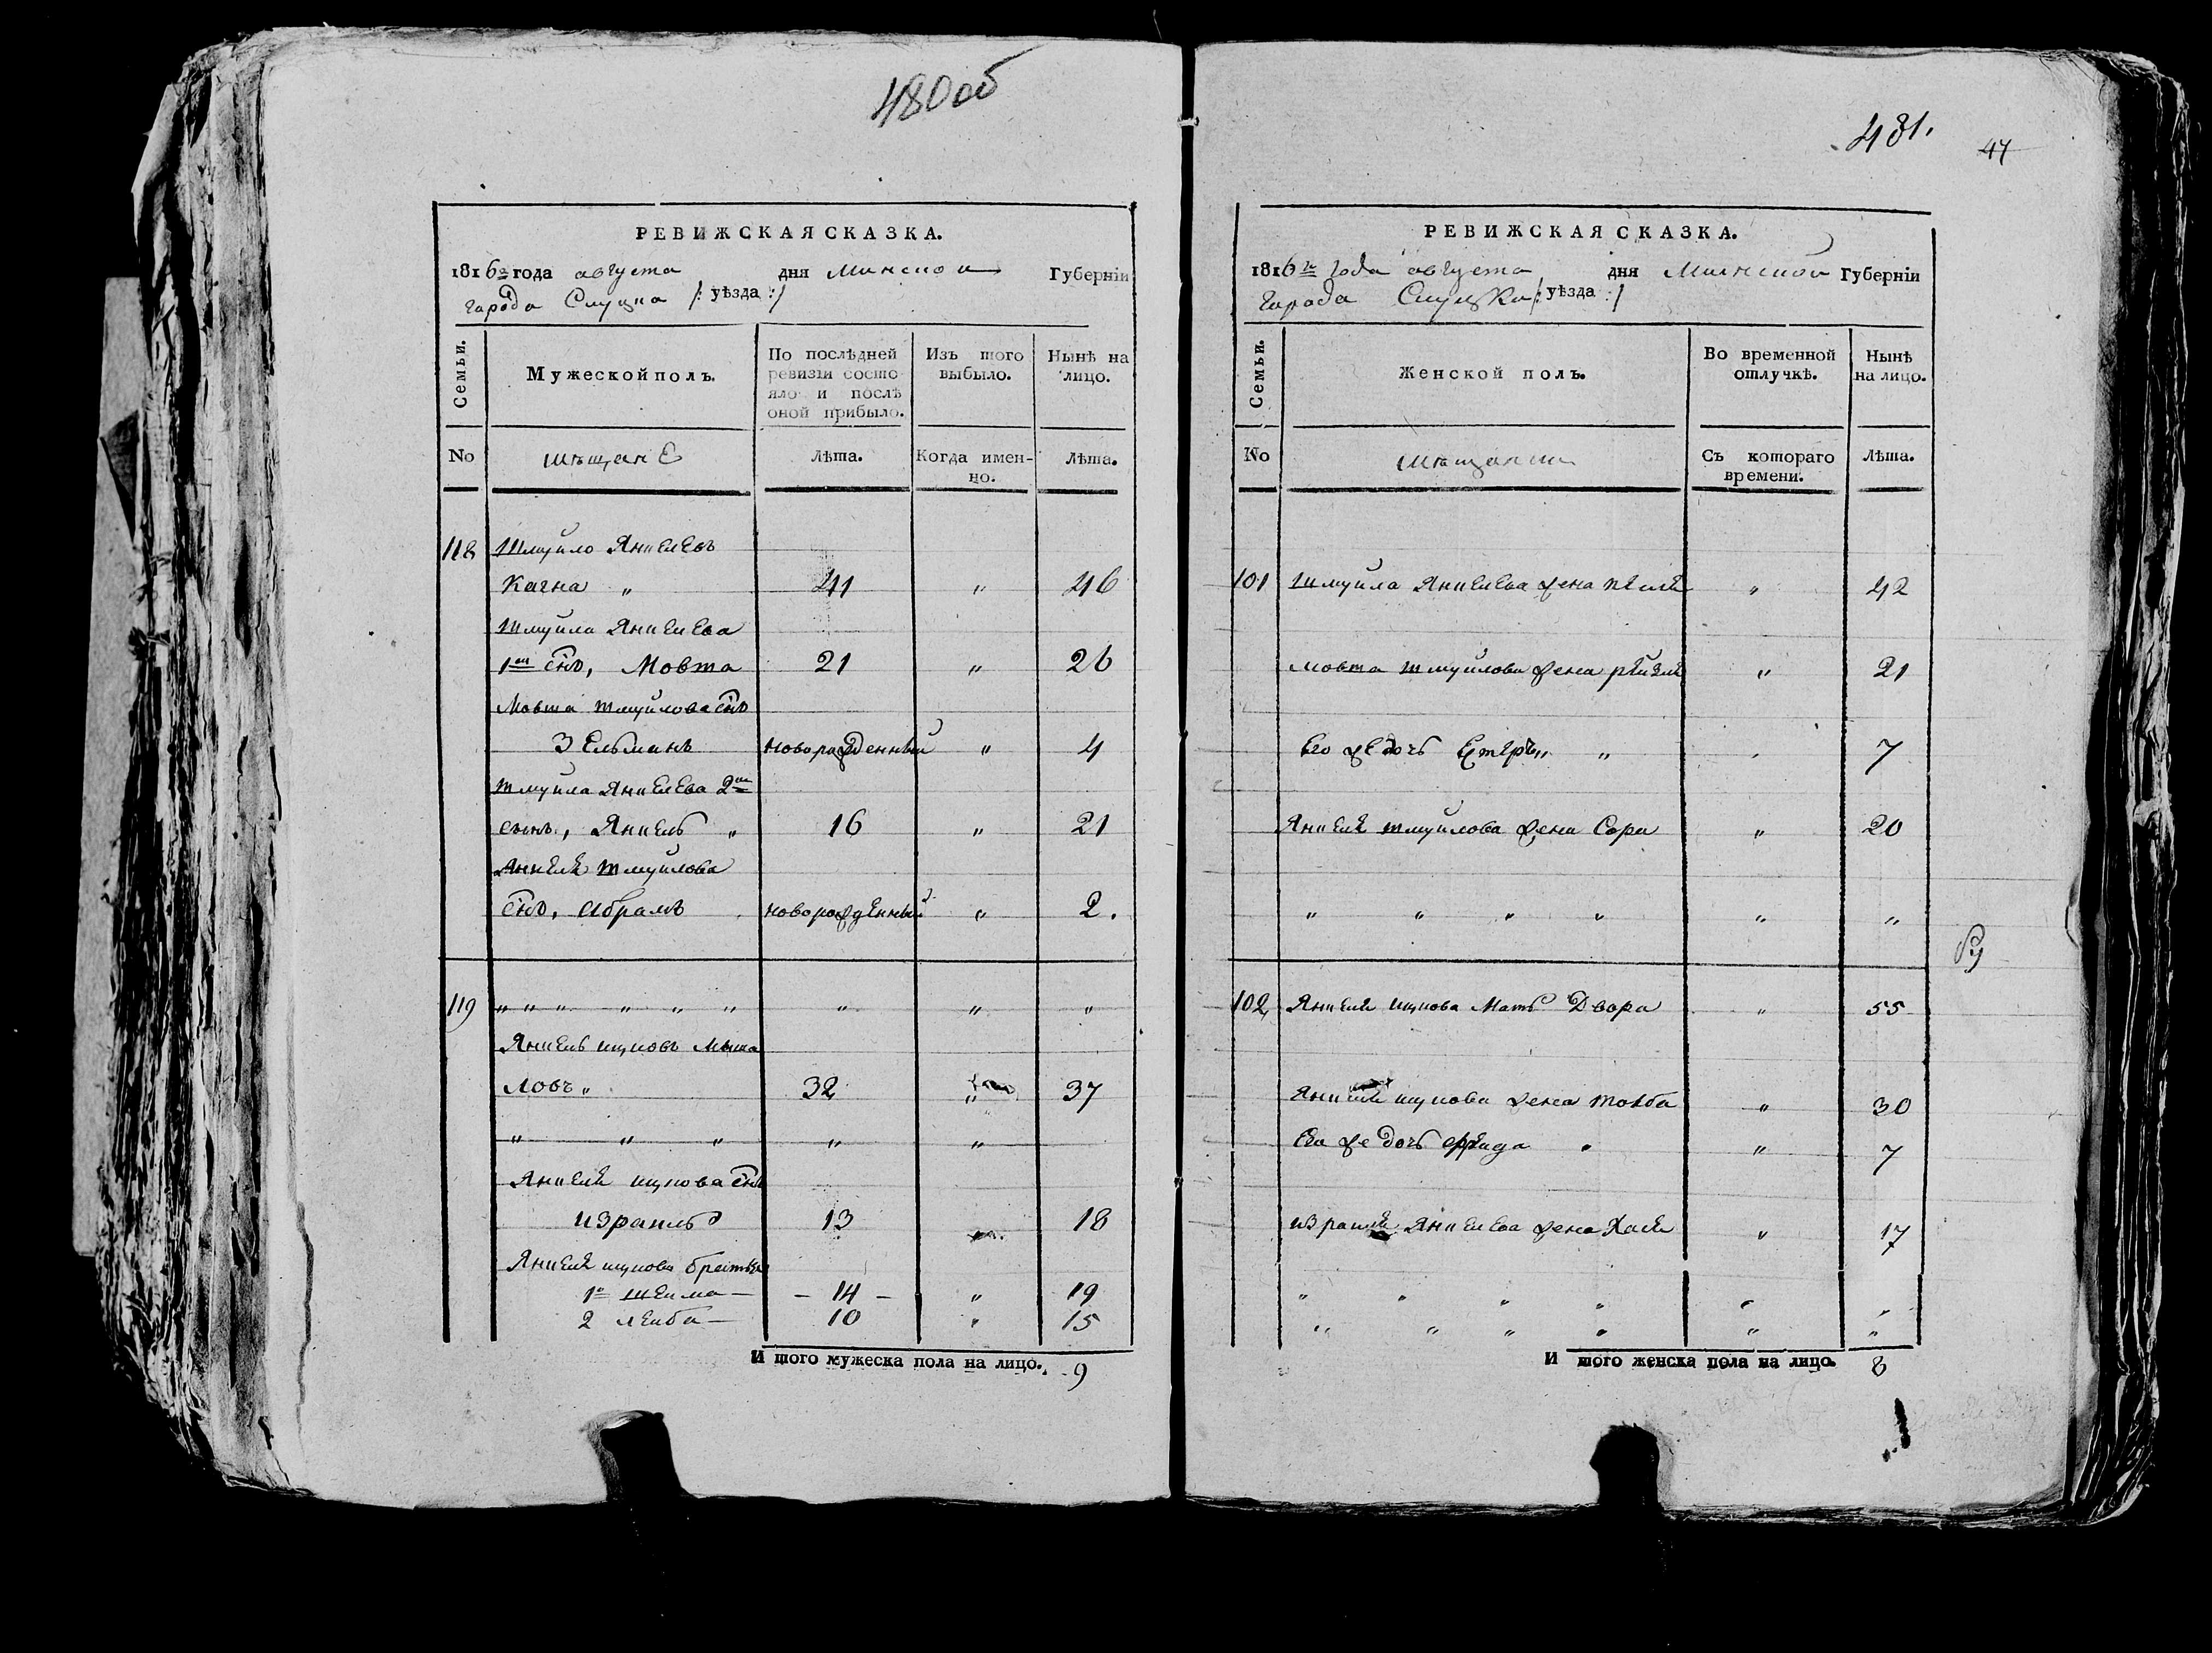 480об
РЕВИЖСКАЯ СКАЗКА.
1816го года августа дня Минской Губерніи
города Слуцка /: уѣзда :/
Семьи.
Мужеской полъ.
По послѣдней ревизіи состояло и послѣ оной прибыло.
Изъ того выбыло.
Нынѣ на лицо.
No
мѣщанЕ
лѣта.
Когда именно.
лѣта.
118 Шмуйло Янкелевъ
Качна „ 41 „ 46
Шмуйла Янкелева
1й снъ, Мовша 21 „ 26
Мовша Шмуйлова снъ
Зельманъ новорожденный „ 4
Шмуйла Янкелева 2й
сынъ, Янкель „ 16 „ 21
Янкеля Шмуйлова
снъ, Абрамъ новорожденный „ 2.
119 „ „ „ „ „ „ „ „ „
Янкель Ицковъ
ловъ „ 32 „ 37
„ „ „ „ „
Янкеля Ицкова снъ
Израиль 13 18
Янкеля Ицкова братья
1й Шейма — 14 — „ 19
2 Лейба — 10 „ 15
И того мужеска пола на лицо. 9
481.
47
РЕВИЖСКАЯ СКАЗКА.
1816го года августа дня Минской Губерніи
города Слуцка /: уѣзда :/
Семьи.
Женской полъ.
Во временной отлучкѣ.
Нынѣ на лицо.
No
мѣщанки
Съ котораго времени.
лѣта.
101 Шмуйла Янкелева жена „ 42
Мовша Шмуйлова жена Рейзля „ 21
Его же дочь „ „ 7
Янкеля Шмуйлова жена Сора „ 20
„ „ „ „ „ „
102 Янкеля Ицкова Мать Двора „ 55
Янкеля Ицкова жена Тойба „ 30
Его же дочь Фрейда „ 7
Израиля Янкелева жена Хася „ 17
„ „ „ „ „ „
„ „ „ „ „ „
И того женска пола на лицо. 8